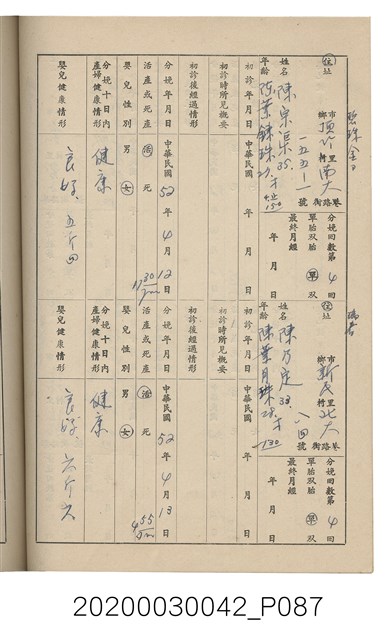 住址
市鄉 頂竹 里村 南大 巷路街 一五五－一 號
姓名 陳宗渠 35.
年齡 陳葉錬珠 27. 才
分娩回數第 4 回
單胎双胎 單 双
最終月經 年 月 日
初診年月日 年 月 日
初診時所見概要
初診後經過情形
分娩年月日 中華民國 52 年 4 月 12 日
活產或死產 活 死 11 30
嬰兒性別 男 女
分娩十日內產婦健康情形 健康
嬰兒健康情形 良好、五斤四
住址
市鄉 新民 里村 北大 巷路街 八四 號
姓名 陳乃定 33.
年齡 陳葉月珠 28. 才
130
分娩回數第 4 回
單胎双胎 單 双
最終月經 年 月 日
初診年月日 年 月 日
初診時所見概要
初診後經過情形
分娩年月日 中華民國 52 年 4 月 13 日
活產或死產 活 死 4 55
嬰兒性別 男 女
分娩十日內產婦健康情形 健康
嬰兒健康情形 良好、六斤六
20200030042_P087